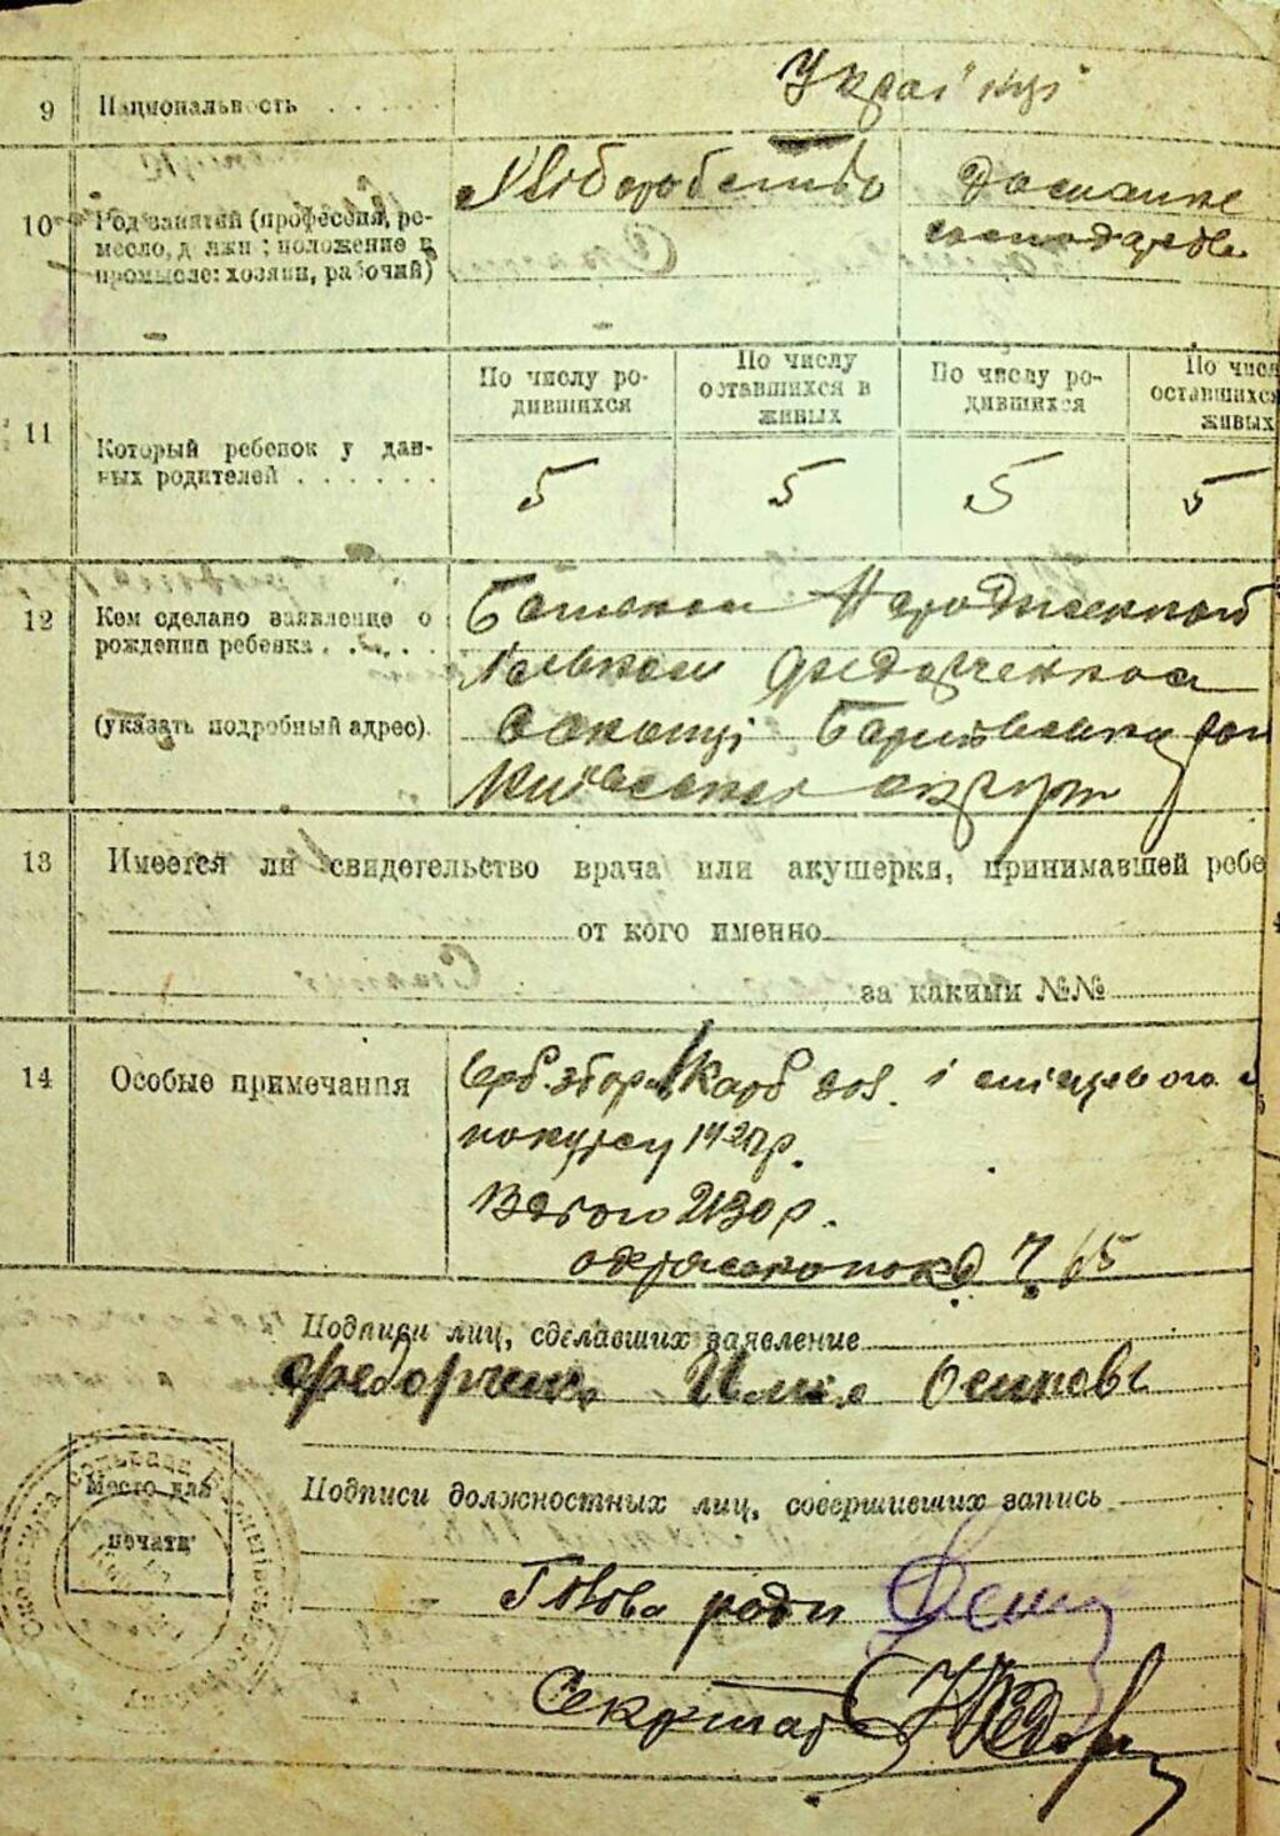 9 Национальность . . . . . Українці
10 Род занятий (профессия, ре-
месло, должн: положение в
промысле: хозяин, рабочий)
Хліборобство
Домашнє
господарство
11 Который ребенок у дан-
ных родителей . . . . . .
По числу ро-
дившихся
По числу
оставшихся в
живых
По числу ро-
дившихся
По числ
оставшихся
живых
5 5 5 5
12 Кем сделано заявление о
рождении ребенка . . . . .
(указать подробный адрес).
Батьком
Федорченком
Баришівськ
Київської округи
13 Имеется ли свидетельство врача или акушерки, принимавшей ребе
от кого именно
за какими №№
14 Особые примечания
Герб. збор Карб і місцевого
1927р.
Всього
Подписи лиц, сделавших заявление
Федорченко Илля Осипов
Место для
печати
Подписи должностных лиц, совершивших запись
Голова ради
Секретар